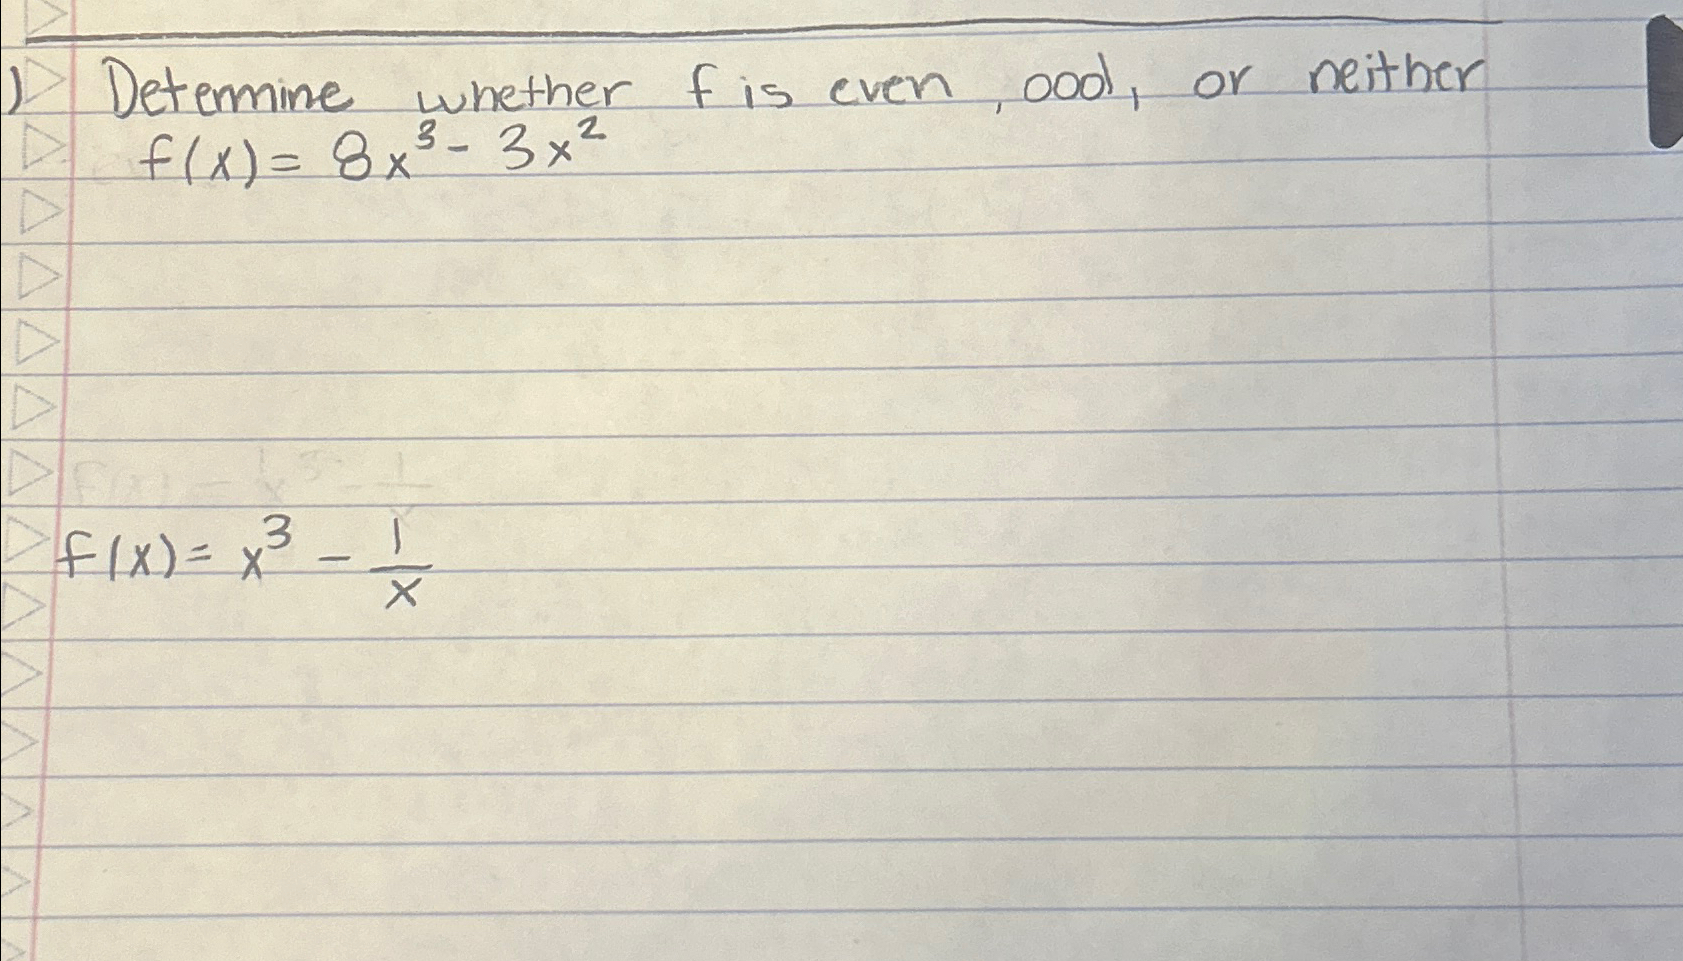 ) Determine whether f is even, ood, or neither
f(x) = 8x³ - 3x²
f(x) = x³ - 1/x